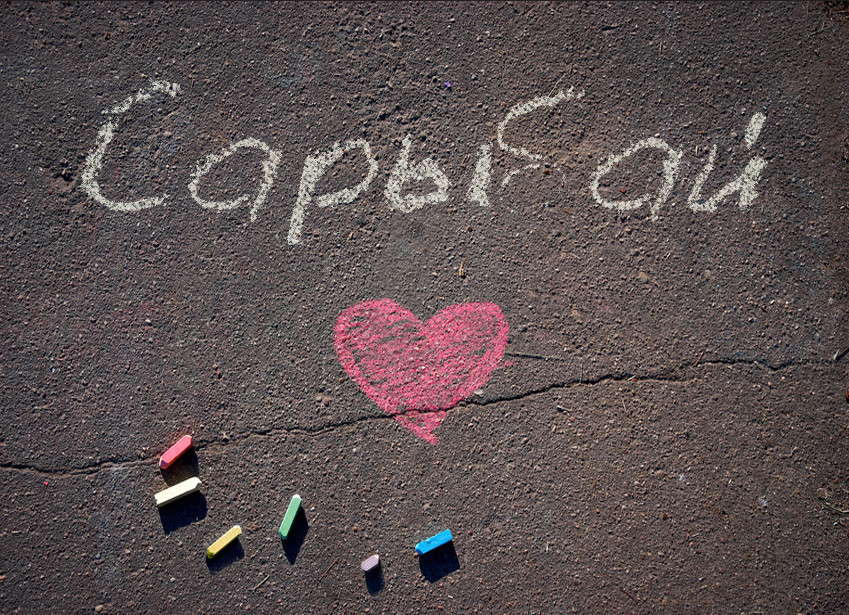 Сарыбай